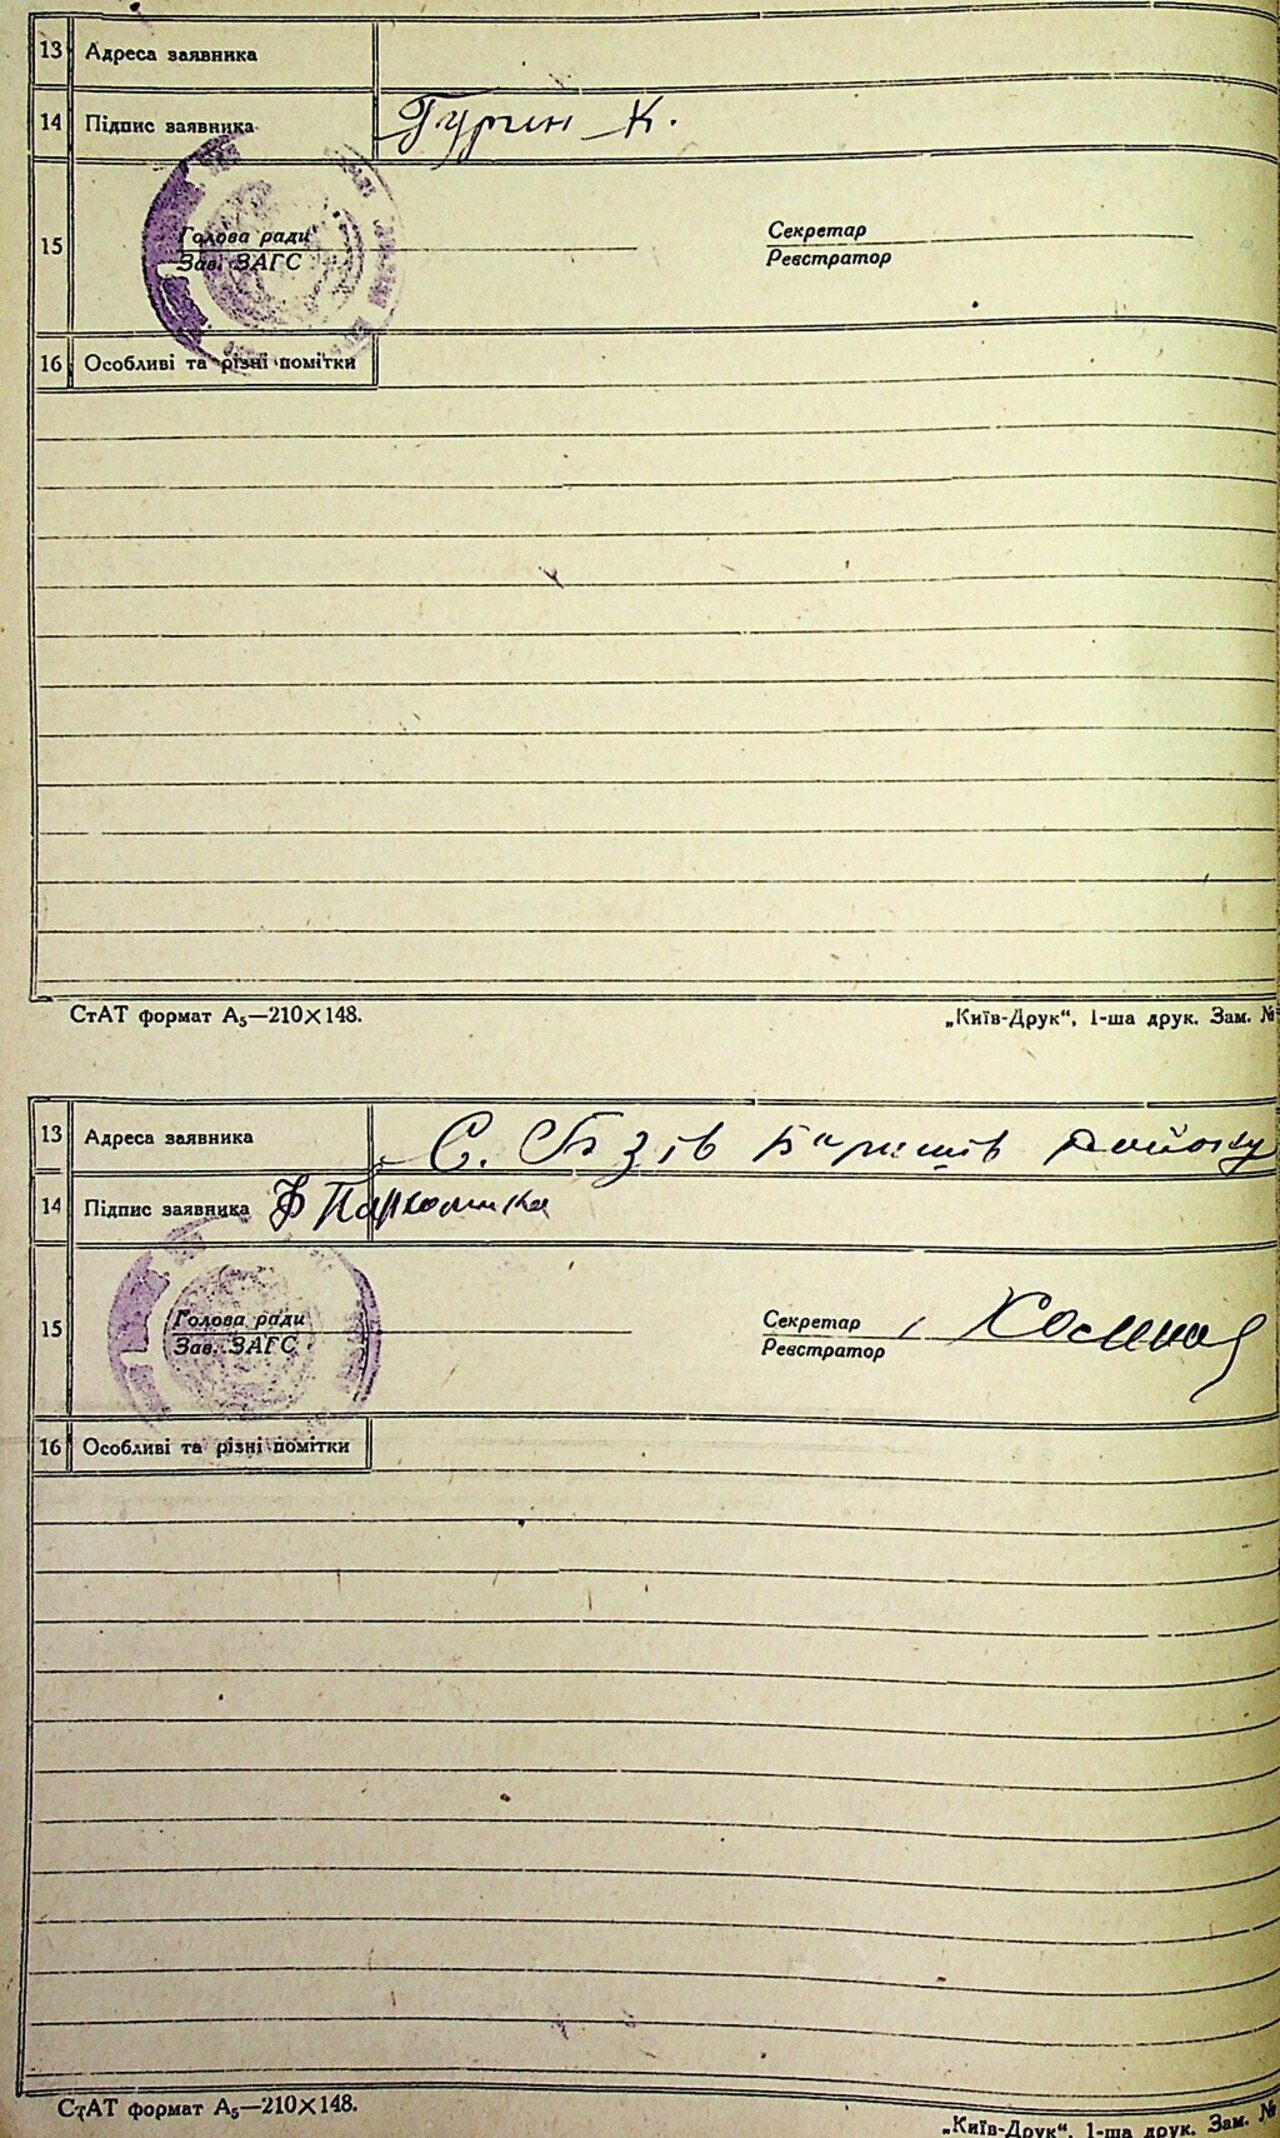 13 Адреса заявника
14 Підпис заявника Гурин К.
15 Голова ради Секретар
Зав. ЗАГС Реєстратор
16 Особливі та різні помітки
СтАТ формат А₅—210×148. „Київ-Друк“, 1-ша друк. Зам. №
13 Адреса заявника С. Бзів Баришів району
14 Підпис заявника Ф Пархоменко
15 Голова ради Секретар
Зав. ЗАГС Реєстратор
16 Особливі та різні помітки
СтАТ формат А₅—210×148.
„Київ-Друк“, 1-ша друк. Зам. №